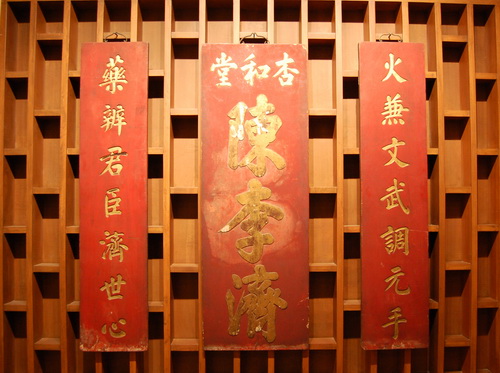 火兼文武調元手
杏和堂
陳李濟
藥辦君臣濟世心